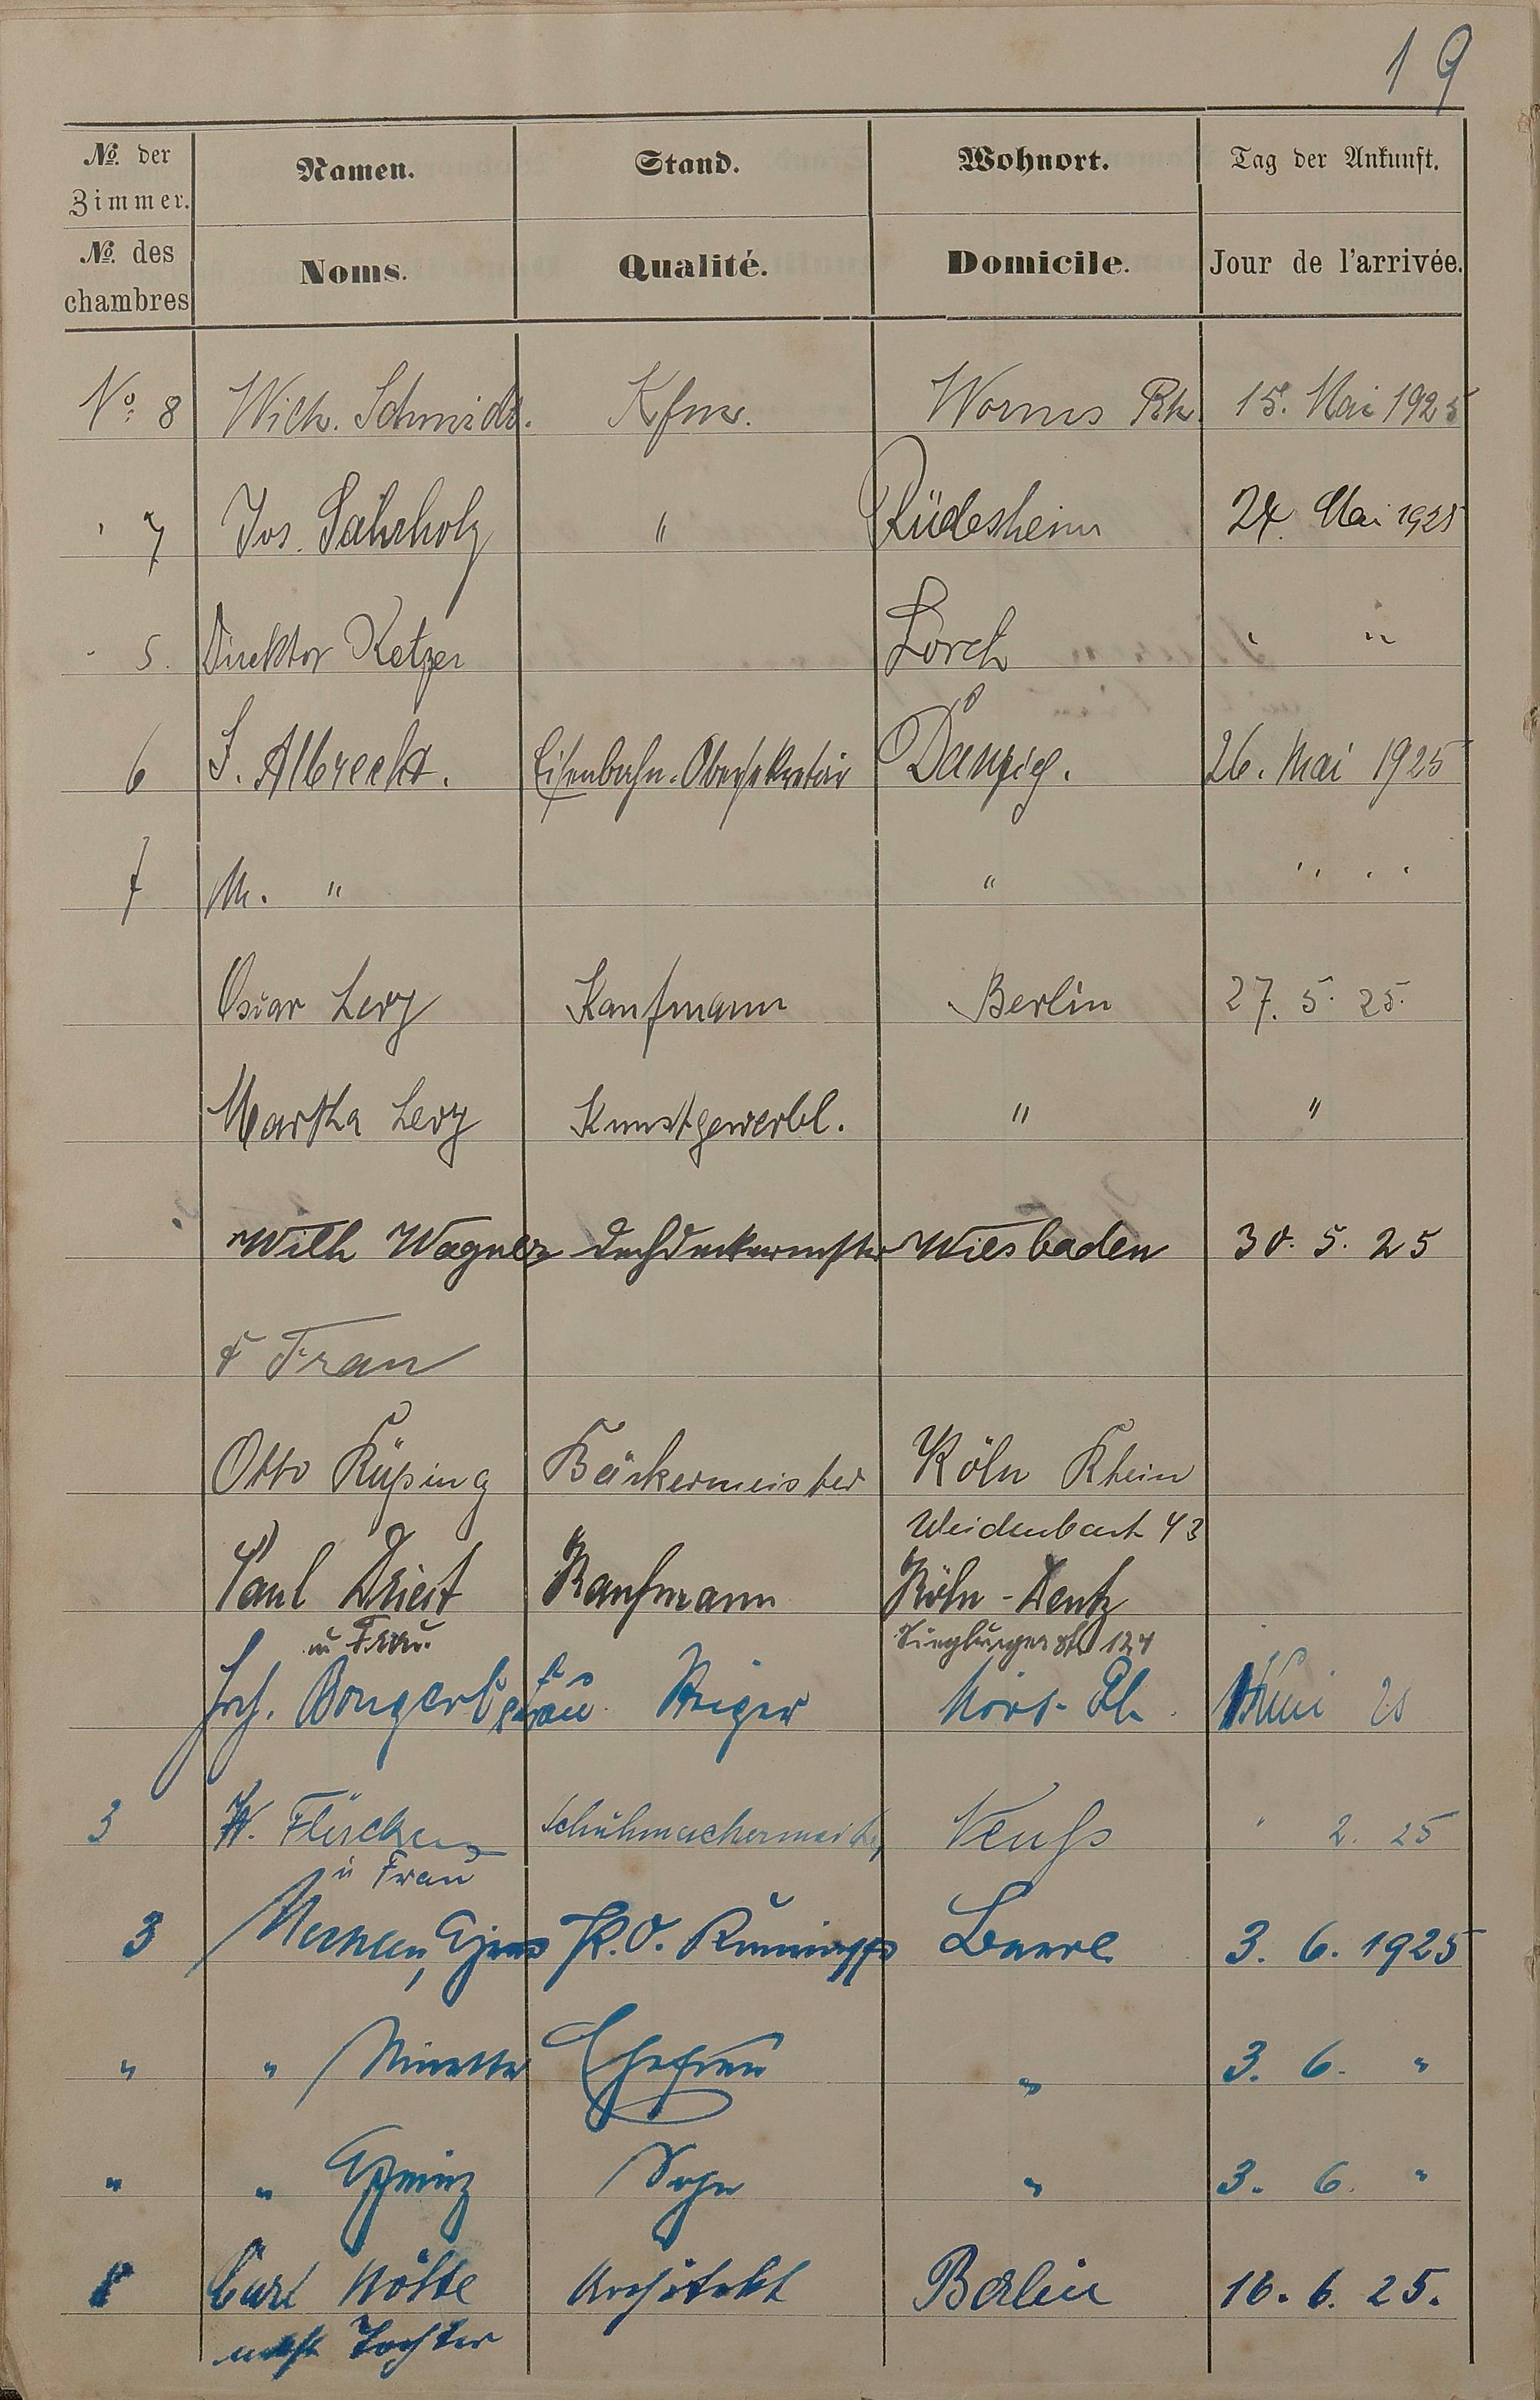 19
No. der Zimmer. Namen. Stand. Wohnort. Tag der Ankunft.
No. des chambres Noms. Qualité. Domicile. Jour de l'arrivée.
No. 8 Wilh. Schmidt. Kfm. Worms Rh. 15. Mai 1925
" 7 Jos. " Rüdesheim 24. Mai 1925
" 5. Direktor Ketzer Lorch " "
6 J. Albrecht. Eisenbahn-Obersekretär Danzig. 26. Mai 1925
7 M. " " " " "
Oscar Levy Kaufmann Berlin 27. 5. 25.
Martha Levy Kunstgewerbl. " "
Wilh Wagner Dachdeckermstr Wiesbaden 30. 5. 25
& Frau
Otto Rüping Bäckermeister Köln Rhein
Weidenbach 43
Paul Kaufmann Köln-Deutz
u Frau. Siegburgerstr 124
Jos. Frau
3 W. Schuhmachermeister Neuß " 2. 25
u Frau
3 3. 6. 1925
" " Ehefrau " 3. 6. "
" " Sohn " 3. 6. "
Carl Nölte Architekt Berlin 16. 6. 25.
nebst Tochter